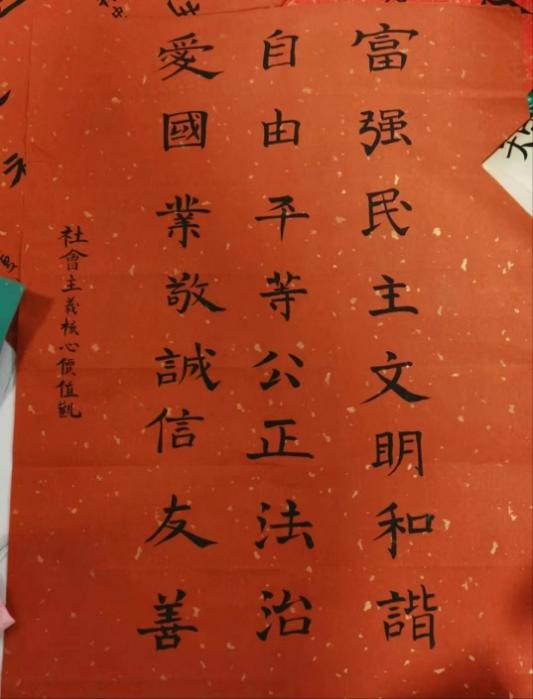 富强民主文明和諧
自由平等公正法治
愛國業敬誠信友善
社會主義核心價值觀